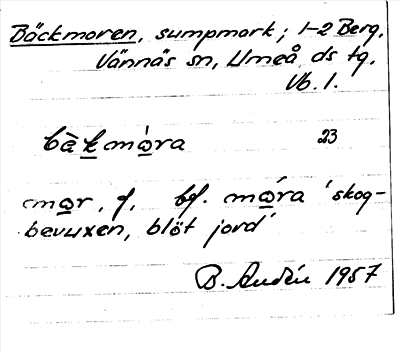 Bäckmoren, sumpmark; 1-2 Berg,
Vännäs sn, Umeå ds tg,
Vb. l.
bà̱kmò̱ra 23
mo̱r, f, bf. mò̱ra 'skog-
bevuxen, blöt jord'
B. Audén 1957